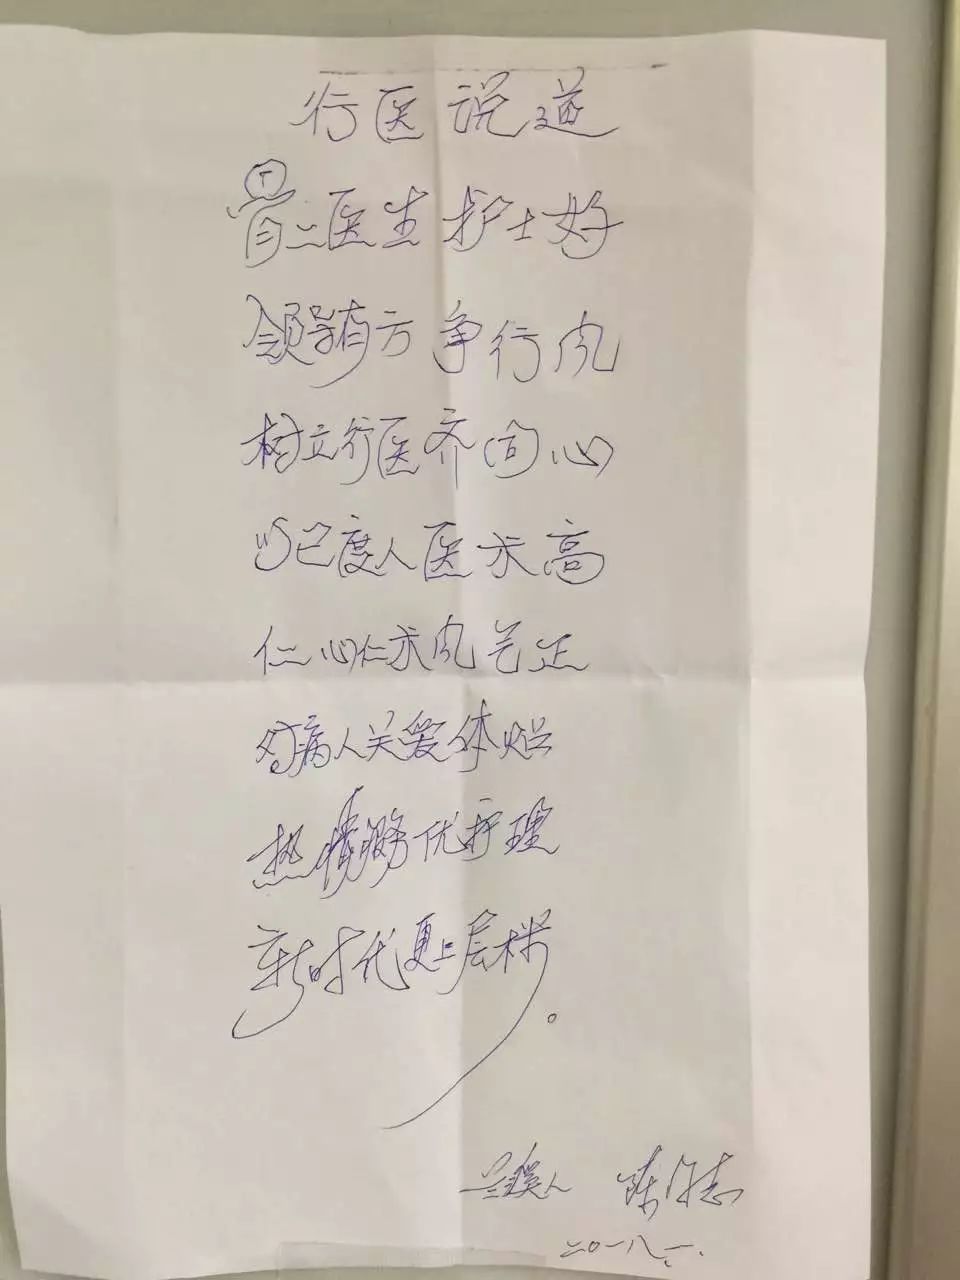 行医说道
骨二医生护士好
领导有方争行风
树立行医齐同心
以己度人医术高
仁心仁术风气正
对病人关爱体贴
热情服务优护理
新时代更上层楼。
人 陈 志
二〇一八.一.